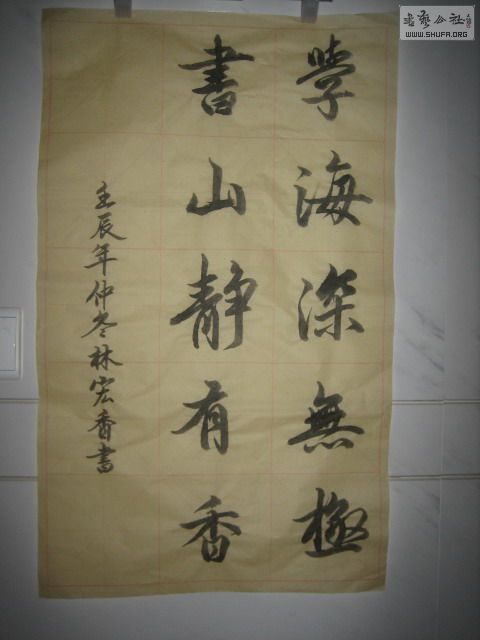 學海深無極
書山靜有香
壬辰年仲冬林宏香書
書藝公社
WWW.SHUFA.ORG